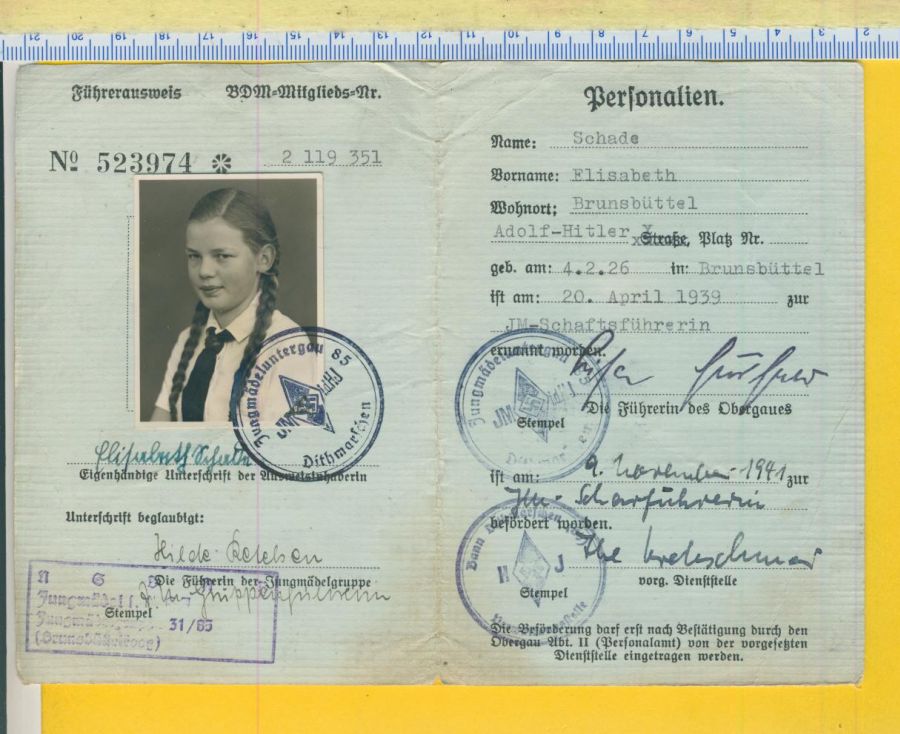 21 20 19 18 17 16 15 14 13 12 11 10 9 8 7 6 5 4 3 2
Führerausweis BDM=Mitglieds=Nr.
Nº 523974 ※ 2 119 351
Jungmädeluntergau 85
JM
HJ
Dithmarschen
Elisabeth Schade
Eigenhändige Unterschrift der Ausweisinhaberin
Unterschrift beglaubigt:
Hilde
Die Führerin der Jungmädelgruppe
Gruppenführerin
Stempel
N S D
Jungmädel
31/85
Personalien.
Name: Schade
Vorname: Elisabeth
Wohnort: Brunsbüttel
Adolf-Hitler Straße, Platz Nr.
geb. am: 4.2.26 in: Brunsbüttel
ist am: 20. April 1939 zur
JM-Schaftsführerin
ernannt worden.
Die Führerin des Obergaues
Stempel
Jungmädeluntergau 85
JM
HJ
ist am: 9. November 1941 zur
JM-Scharführerin
befördert worden.
vorg. Dienststelle
Stempel
Bann Dithmarschen
H J
Die Beförderung darf erst nach Bestätigung durch den
Obergau Abt. II (Personalamt) von der vorgesetzten
Dienststelle eingetragen werden.